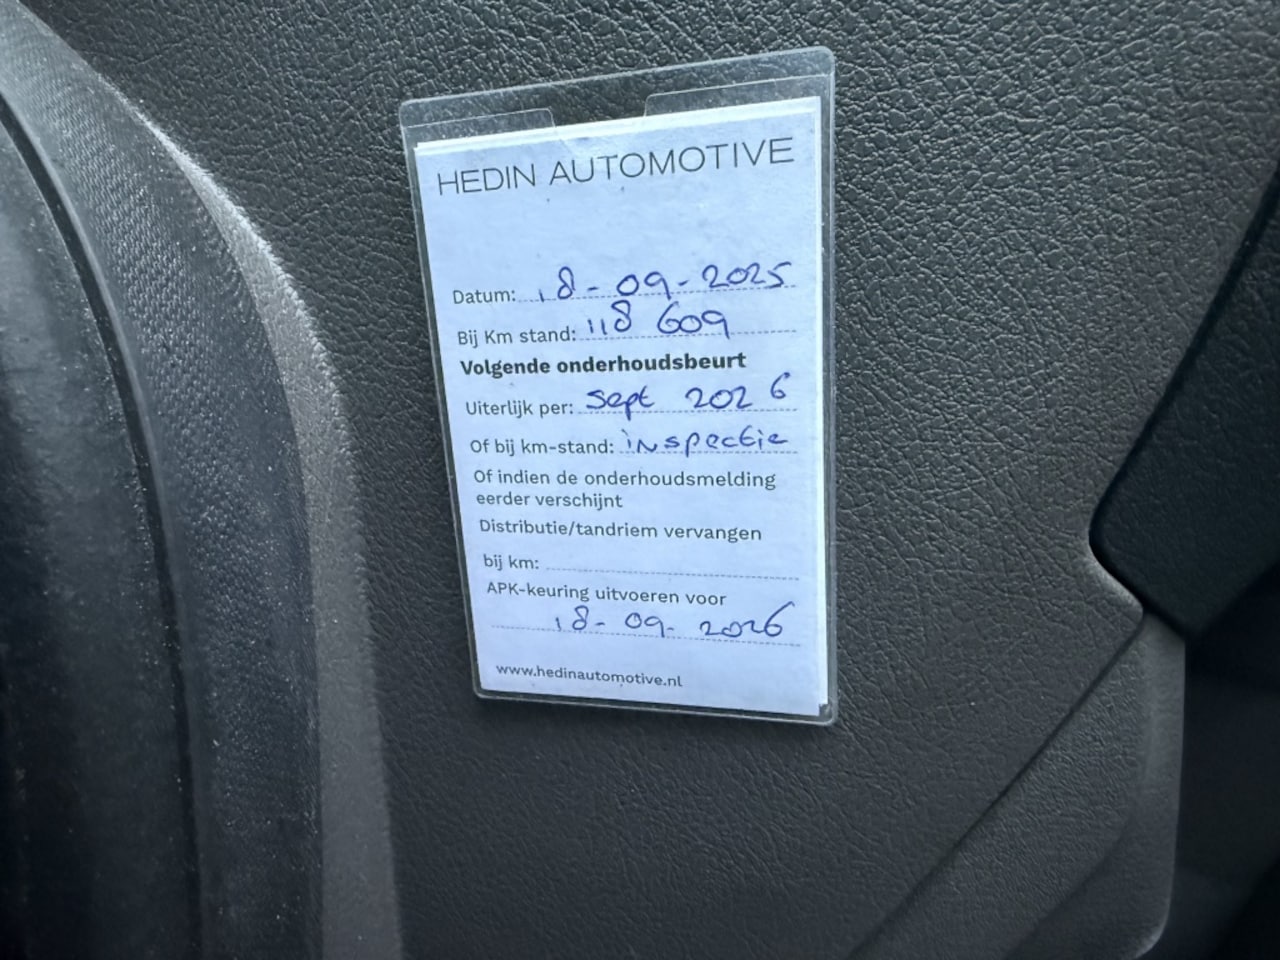 HEDIN AUTOMOTIVE
Datum: 18-09-2025
Bij Km stand: 118 609
Volgende onderhoudsbeurt
Uiterlijk per: sept 2026
Of bij km-stand: inspectie
Of indien de onderhoudsmelding
eerder verschijnt
Distributie/tandriem vervangen
bij km:
APK-keuring uitvoeren voor
18-09-2026
www.hedinautomotive.nl